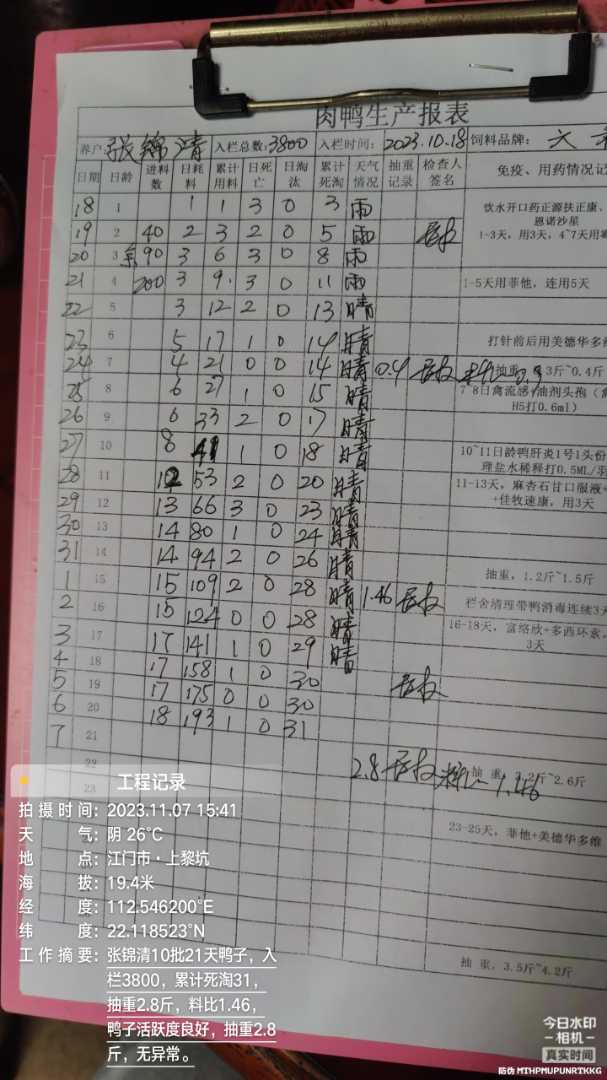 肉鸭生产报表
养户 张锦清 入栏总数:3800 入栏时间: 2023.10.18 饲料品牌: 六
日期 日龄 进料数 日耗料 累计用料 日死亡 日淘汰 累计死淘 天气情况 抽重记录 检查人签名 免疫、用药情况记
18 1 1 1 3 0 3 雨 饮水开口药正源扶正康、恩诺沙星
19 2 40 2 3 2 0 5 雨 1-3天，用3天，4~7天用
20 3 余90 3 6 3 0 8 雨
21 4 200 3 9 3 0 11 雨 1-5天用菲他，连用5天
22 5 3 12 2 0 13 晴
23 6 5 17 1 0 14 晴 打针前后用美德华多维
24 7 4 21 0 0 14 晴 0.4 抽重 3斤~0.4斤
25 8 6 27 1 0 15 晴 7-8日禽流感+油剂头孢（
H5打0.6ml）
26 9 6 33 2 0 17 晴
27 10 8 41 1 0 18 晴 10~11日龄鸭肝炎1号1头份
理盐水稀释打0.5ML/羽
28 11 12 53 2 0 20 晴 11-13天，麻杏石甘口服液+
+佳牧速康，用3天
29 12 13 66 3 0 23 晴
30 13 14 80 1 0 24 晴
31 14 14 94 2 0 26 晴 抽重，1.2斤~1.5斤
1 15 15 109 2 0 28 晴 1.46 栏舍清理带鸭消毒连续3天
2 16 15 124 0 0 28 晴 16-18天，富络欣+多西环素，
3天
3 17 17 141 1 0 29 晴
4 18 17 158 1 0 30
5 19 17 175 0 0 30
6 20 18 193 1 0 31
7 21
22 2.8 料比 1.46 抽重，2.2斤~2.6斤
23
23-25天，菲他+美德华多维
抽重，3.5斤~4.2斤
工程记录
拍摄时间: 2023.11.07 15:41
天气: 阴 26°C
地点: 江门市·上黎坑
海拔: 19.4米
经度: 112.546200°E
纬度: 22.118523°N
工作摘要: 张锦清10批21天鸭子，入
栏3800，累计死淘31，
抽重2.8斤，料比1.46，
鸭子活跃度良好，抽重2.8
斤，无异常。
今日水印
-相机-
真实时间
防伪 MIHPMUPUNRIKKG